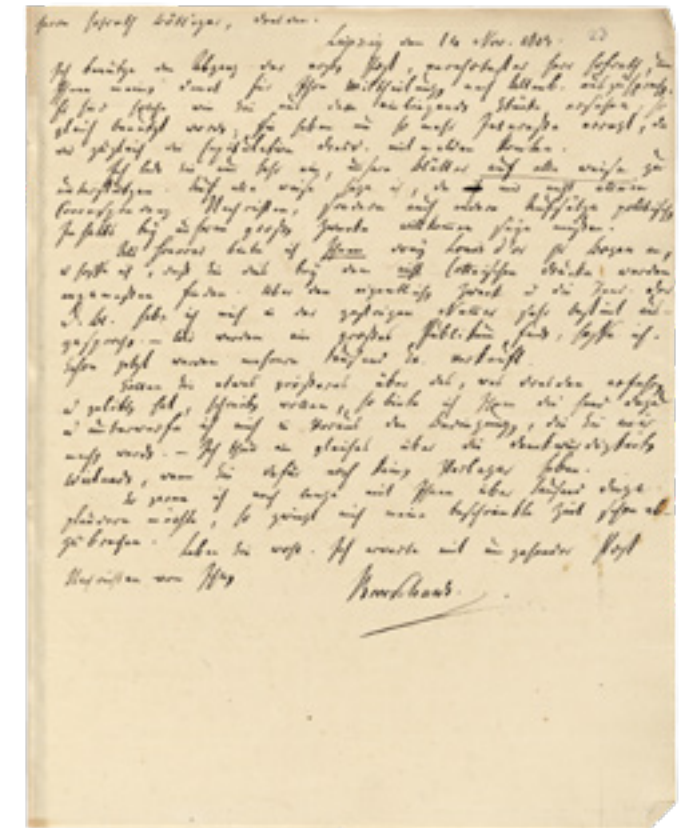 Herrn Hofrath Böttiger, Dresden.
Leipzig den 14 Nov. 1813. 23
Ich benütze den Abgang der ersten Post, verehrtester Herr Hofrath, um
Ihnen meinen Dank für Ihre Mittheilungen nach Altenb. auszusprechen.
Sie
gleich benützt worden, Sie haben um so mehr Interesse erregt, da
wir zugleich die Capitulation Dresd. mit melden konnten.
Ich lade Sie nun sehr ein, unsere Blätter auf alle weise zu
unterstützen. Auf alle weise sage ich, da mir nicht allein
Correspondenz Nachrichten, sondern auch andere Aufsätze politischen
Inhalts bey unserm großen Zwecke willkommen seyn müßen.
Als Honorar biete ich Ihnen drey Louisd'or pr Bogen an,
u hoffe ich, daß Sie das bey dem
angemeßen finden. Über den eigentlichen Zweck u die
D. Bl. habe ich mich in der gestrigen Nummer sehr bestimt aus-
gesprochen. — Wir werden ein großes Publikum finden, hoffe ich.
Schon jetzt werden mehrere tausend Ex. verkauft.
Sollten Sie etwas größeres über das, was Dresden erfahren
u gelitten hat, schreiben wollen, so biete ich Ihnen die Hand dazu
u unterwerfe ich mich im Voraus den Bedingungen, die Sie mir
machen werden. — Ich thue ein gleiches über die Denkwürdigkeiten
Wielands, wenn Sie dafür noch keinen Verleger haben.
So gerne ich noch lange mit Ihnen über tausend Dinge
plaudern möchte, so zwingt mich meine beschränkte Zeit schon ab
zubrechen. Leben Sie wohl. Ich erwarte mit umgehender Post
Nachrichten von Ihnen
Brockhaus.